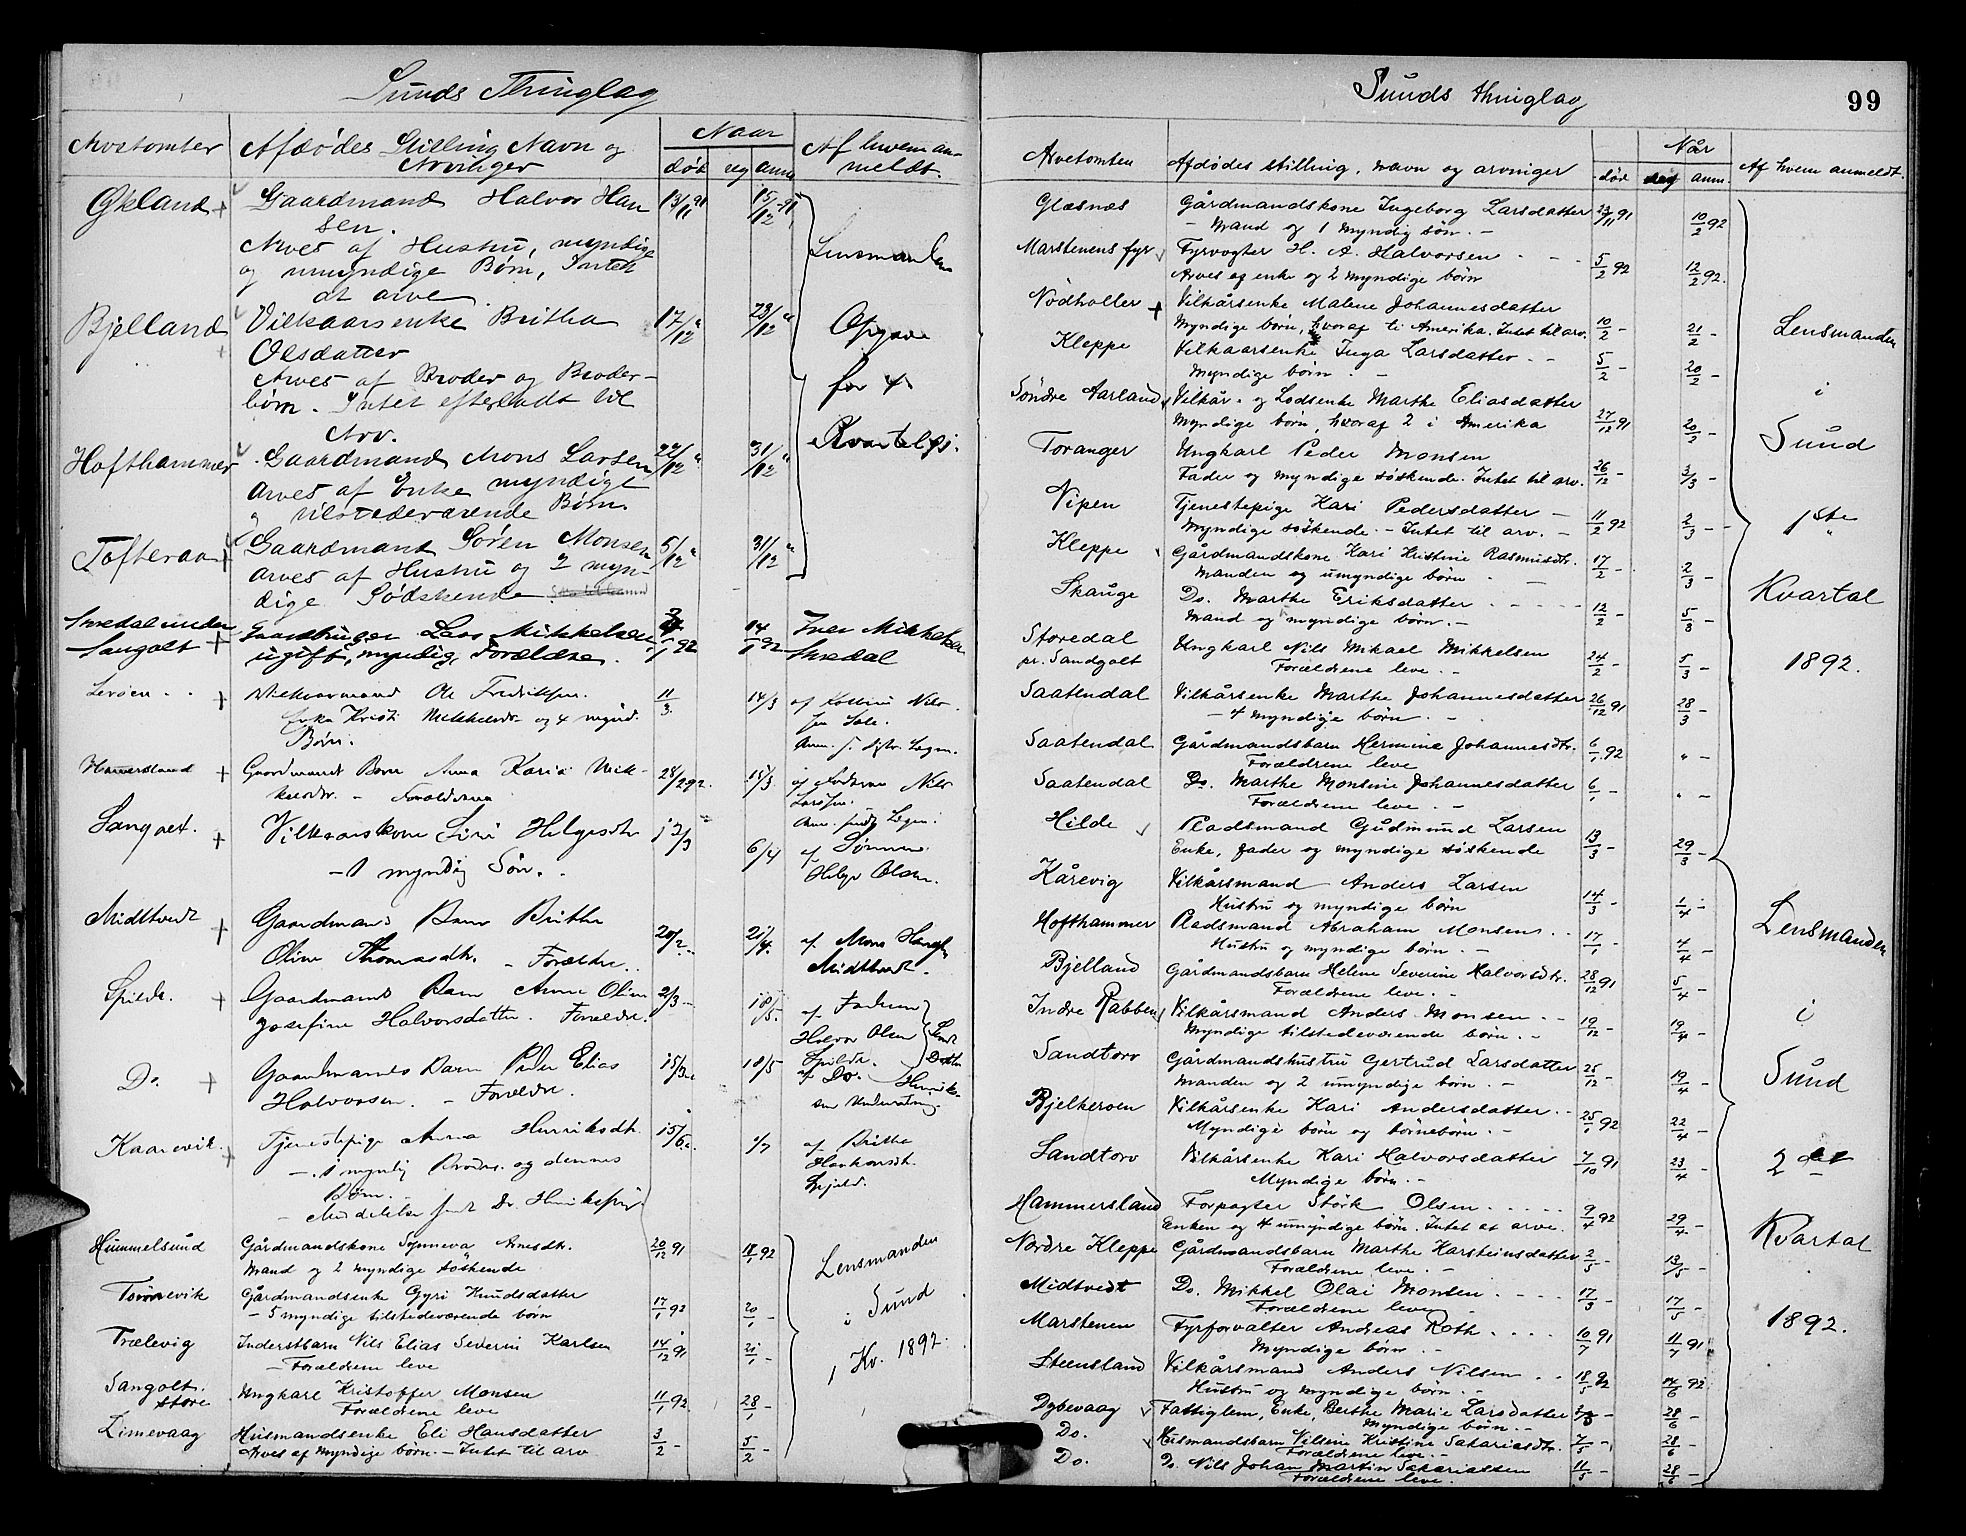 Sunds Thinglag
Arvetomter Afdødes Stilling Navn og Arvinger Naar død reg anm Af hvem anmeldt.
Økland + Gaardmand Halvor Han 13/11 91 15/12 91
sen.
Arves af Hustru, myndige
og umyndige Børn, Intet
at arve.
Bjelland Vilkaarsenke Britha 17/12 " 23/12 "
Olsdatter
Arves af Broder og Broder-
børn. Intet efterladt til
Arv.
Hofthammer Gaardmand Mons Larsen 22/12 " 31/12 "
Arves af Enke myndige
og tilstedeværende Børn.
Tofteraa + Gaardmand Søren Monsen 5/12 " 31/12 "
Arves af Hustru og 2 myn-
dige Sødskende
Lensmanden
Opgave
for 4
Kvartal
Sangolt + Gaardbruger Lars Mikkelsen 14/1 92 Iver Mikkelsen
ugift, myndig, Forældre.
Lerøen + Vilkaarmand Ole Fredriksen. 11/3. 14/3
Enke Kristi Mikkelsdr og 4 mynd.
Børn.
Hammersland + Gaardmands Barn Anna Karia Mik- 28/2 92. 15/3
kelsdr. - Forældrene
Sangolt. + Vilkaarskone Siri Helgesdtr 12/3 6/4 af Sønnen
- 1 myndig Søn. Helge Olsen.
Midttvedt + Gaardmands Barn Brithe 20/2 21/4. af Mons
Oline Thomasdtr. - Forældre. Midttvedt.
Spilde. + Gaardmands Barn Anne Oline 2/3 18/5. af Faderen
Josefine Halvorsdatter. Forældre. Halvor Olsen
Spilde.
Do. + Gaardmands Barn Peder Elias 15/3 18/5 af Do.
Halvorsen. - Forældre.
Kaarevik. + Tjenestepige Anna Henriksdtr. 15/6 1/7 af Britha
- 1 myndig Broder og dennes Haakonsdtr.
Børn.
Hummelsund Gårdmandskone Synneva Arnesdtr. 20/12 91 18/1 92
Mand og 2 myndige søskende
Tørrevik Gårdmandsenke Gyri Knudsdatter 17/1 92 20/1 -
- 5 myndige tilstedeværende børn
Trælevig Inderstbarn Nils Elias Severin Karlsen 14/12 91 21/1 -
- Forældrene leve
Sangolt. store Ungkarl Kristoffer Monsen 11/1 92. 28/1 -
Forældrene leve
Limevaag Husmandsenke Eli Hansdatter 3/2 - 5/2 -
Arves af myndige børn. - Intet til arv
Lensmanden
i Sund
1 Kv. 1892.
Sunds thinglag 99
Arvetomten Afdødes stilling, navn og arvinger død Når anm. Af hvem anmeldt.
Glæsnæs Gårdmandskone Ingeborg Larsdatter 23/11 91 10/2 92
- Mand og 1 myndig søn. -
Marstenens fyr Fyrvogter H. A. Halvorsen 5/2 92 12/2 92.
Arves af enke og 2 myndige børn
Nødholler + Vilkårsenke Malene Johannesdatter
Myndige børn, hvoraf ti Amerika. Intet til arv. 10/2 - 21/2 -
Kleppe Vilkaarsenke Inga Larsdatter - - 5/2 - 20/2 -
Myndige børn. -
Søndre Aarland Vilkår- og Lodsenke Marthe Eliasdatter
Myndige børn, hvoraf 2 i Amerika 27/12 91 20/2 -
Toranger Ungkarl Peder Monsen
Fader og myndige søskende. Intet til arv. 26/12 - 3/3 -
Vipen Tjenestepige Kari Pedersdatter -
Myndige søskende. - Intet til arv. - 11/2 92 2/3 -
Kleppe Gårdmandskone Kari Kristine Rasmusdtr. 17/2 - 2/3 -
Manden og umyndige børn -
Skauge Do. Marthe Eriksdatter - - - - 12/2 - 5/3 -
Mand og myndige børn. -
Storedal Ungkarl Nils Mikael Mikkelsen
pr. Sandgolt Forældrene leve. - 24/2 - 5/3 -
Saatendal Vilkårsenke Marthe Johannesdatter 26/12 91 28/3 -
- 4 myndige børn. -
Saatendal Gårdmandsbarn Hermine Johannesdtr. 6/1 92 " -
Forældrene leve
Saatendal Do. Marthe Monsine Johannesdatter 6/1 - " -
Forældrene leve. -
Hilde Pladsmand Gudmund Larsen 13/3 - 29/3 -
Enke, fader og myndige søskende
Kårevig Vilkårsmand Anders Larsen 14/3 - 1/4 -
Hustru og myndige børn
Hofthammer Pladsmand Abraham Monsen 17/1 - 4/4 -
Hustru og myndige børn. -
Bjelland Gårdmandsbarn Helene Severine Halvorsdtr. 28/12 91 5/4 -
Forældrene leve. -
Indre Rabben Vilkårsmand Anders Monsen 19/12 - 19/4 -
Myndige tilstedeværende børn. -
Sandtorv Gårdmandshustru Gertrud Larsdatter 25/12 - 19/4 -
Manden og 2 umyndige børn. -
Bjelkerøen Vilkårsenke Kari Andersdatter. - 25/1 92 22/4 -
Myndige børn og børnebørn. -
Sandtorv Vilkårsenke Kari Halvorsdatter 7/10 91 23/4 -
Myndige børn. -
Hammersland Forpagter Størk Olsen 9/4 92 29/4 -
Enken og 4 umyndige børn. Intet at arve.
Nordre Kleppe Gårdmandsbarn Marthe Karsteinsdatter 2/5 - 13/5 -
Forældrene leve. -
Midtvedt Do. Mikkel Olai Monsen - - - - 17/3 - 17/5 -
Forældrene leve
Marstenen Fyrforvalter Andreas Roth 10/7 91 11/7 91
Myndige børn. -
Steensland Vilkårsmand Anders Nilsen 18/5 92 14/6 92
Hustru og myndige børn. -
Dybevaag Fattiglem, Enke, Berthe Marie Larsdatter 28/6 -
Myndige børn. -
Do. Husmandsbarn Nilsine Kristine Sakariasdtr. 7/5 - 28/6 -
Forældrene leve. -
Do. Do. Nils Johan Martin Sakariassen 11/5 - 28/6 -
Forældrene leve.
Lensmanden
i
Sund
1ste
Kvartal
1892.
Lensmanden
i
Sund
2det
Kvartal
1892.